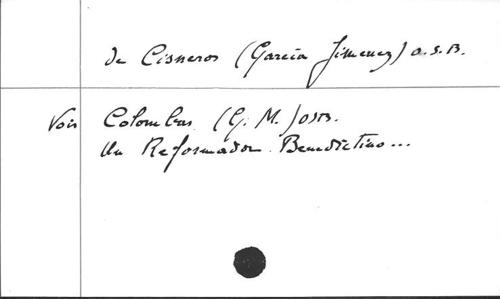 de Cisneros (García Jimenez) O.S.B.
Voir Colombas (G. M.) OSB.
Un Reformador Benedictino...